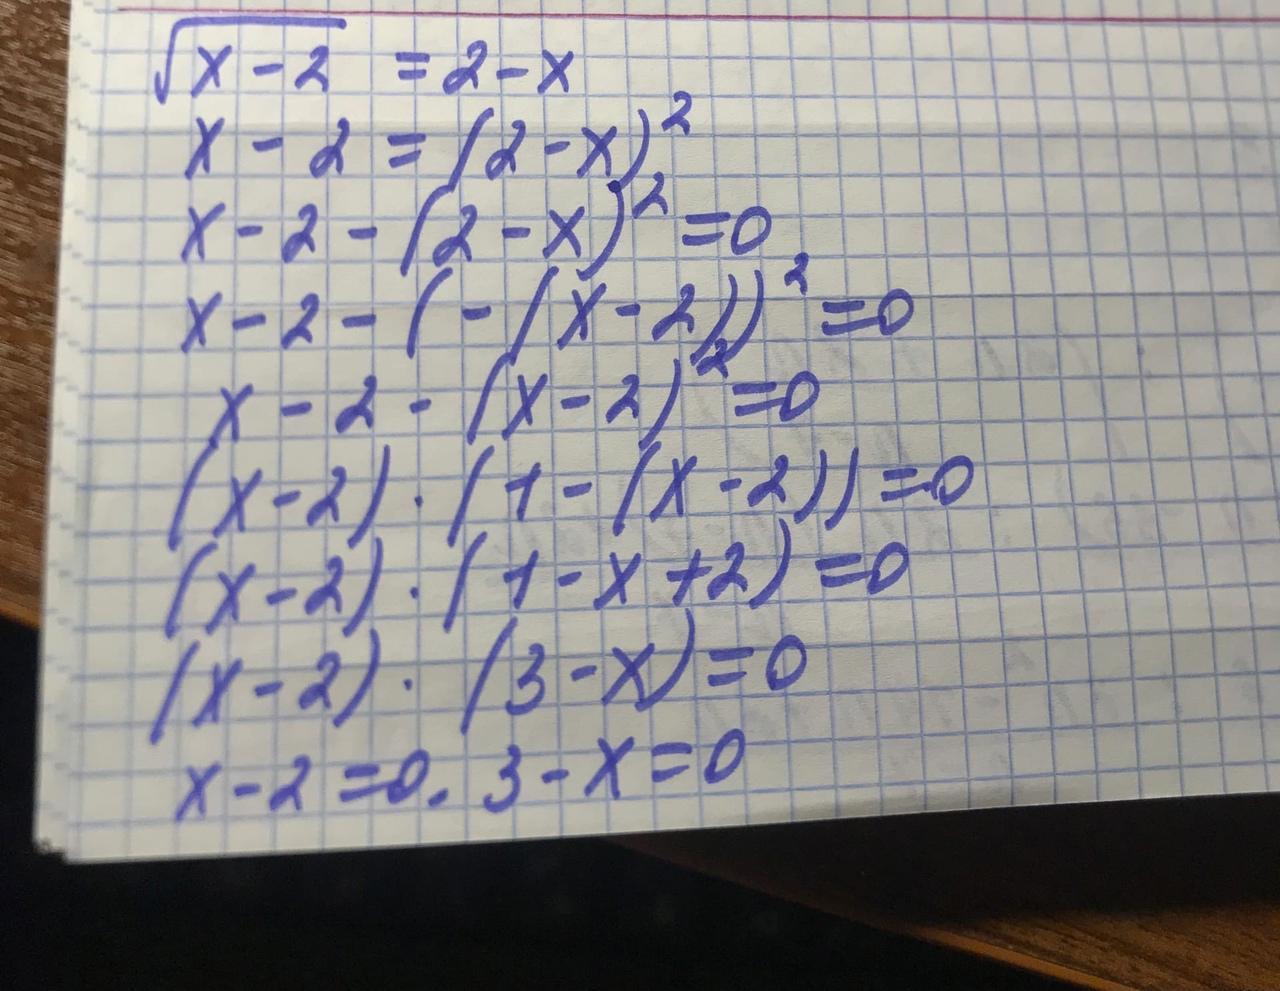 √(x-2) = 2-x
x - 2 = (2-x)²
x - 2 - (2-x)² = 0
x - 2 - (-(x-2))² = 0
x - 2 - (x-2)² = 0
(x-2) · (1-(x-2)) = 0
(x-2) · (1-x+2) = 0
(x-2) · (3-x) = 0
x-2=0. 3-x=0